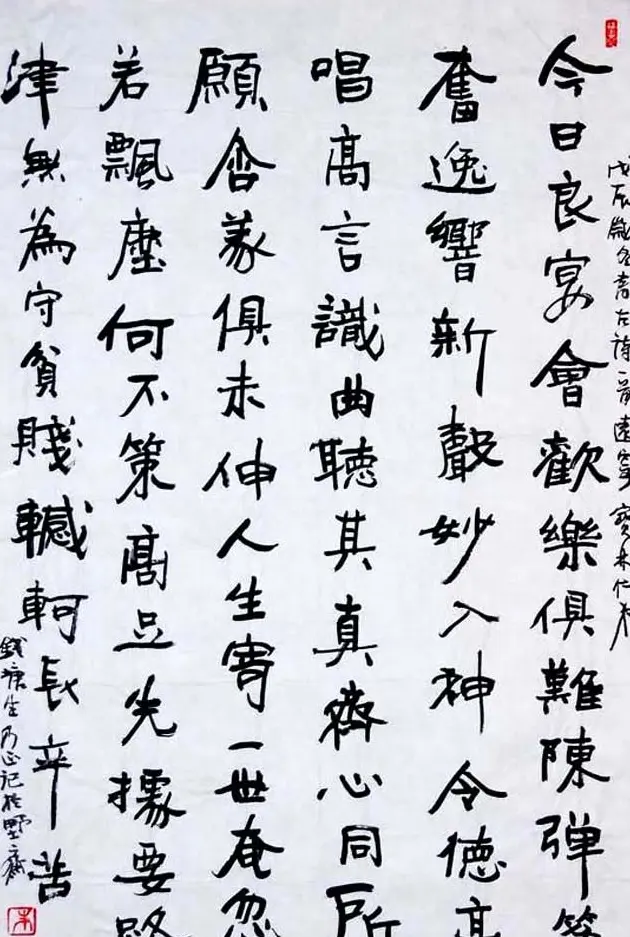 戊辰歲冬書古詩一首遠寄
今日良宴會歡樂俱難陳弹筝
奮逸響新聲妙入神令德高
唱高言識曲聽其真齊心同所
願含義俱未伸人生寄一世奄忽
若飄塵何不策高足先據要路
津無為守貧賤轗軻長辛苦
錢塘生乃正記於野齋